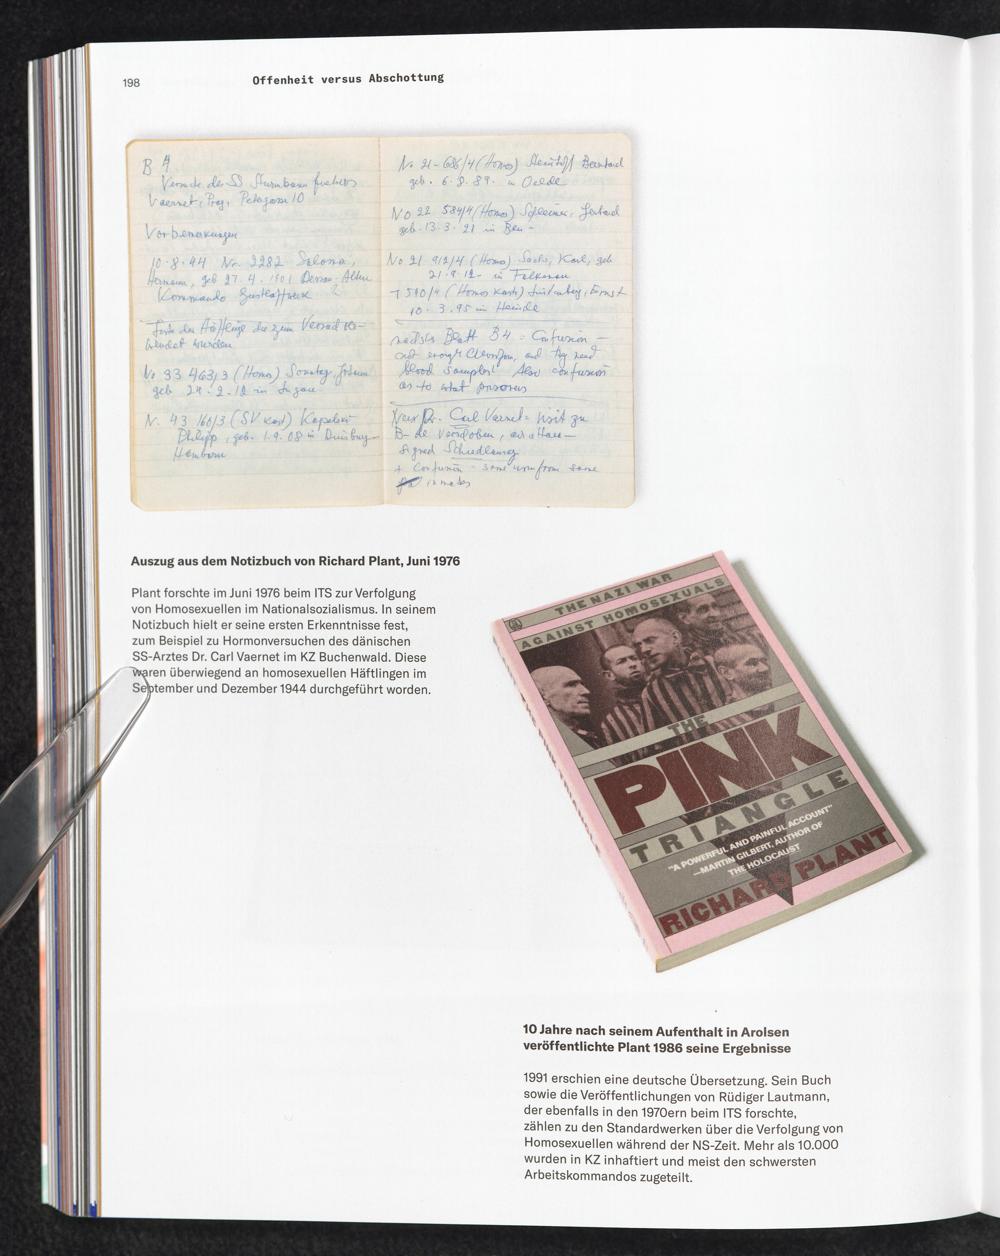 198
Offenheit versus Abschottung
B 4
Versuche des SS Sturmbann
Vaernet, Prag,
Vorbemerkungen
10.8.44 No. 2282
geb 27.4. 1901 Dessau
Kommando
Häftlinge die zum
wurden
No 33 463/3 (Homo)
geb 24.2.12 in
N. 43 160/3 (SV kast)
Philipp, geb. 1.9.08 in Duisburg-
Hamborn
No 21-686/4 (Homo) Bernhard
geb. 6.8.89. in Oelde
No 22 584/4 (Homo) Gerhard
geb. 13.3.21 in
No 21 912/4 (Homo) Sachs, Karl, geb
in Falkenau
510/4 (Homo kast) Ernst
10.3.95 in
Blatt B4 = Confusion —
not enough and they need
blood samples! Also confusion
as to what prisoners
Dr. Carl Vaernet visit zu
signed Schiedlausky
+ Confusion - some some
inmates
Auszug aus dem Notizbuch von Richard Plant, Juni 1976
Plant forschte im Juni 1976 beim ITS zur Verfolgung
von Homosexuellen im Nationalsozialismus. In seinem
Notizbuch hielt er seine ersten Erkenntnisse fest,
zum Beispiel zu Hormonversuchen des dänischen
SS-Arztes Dr. Carl Vaernet im KZ Buchenwald. Diese
waren überwiegend an homosexuellen Häftlingen im
September und Dezember 1944 durchgeführt worden.
THE NAZI WAR
AGAINST HOMOSEXUALS
THE
PINK
TRIANGLE
"A POWERFUL AND PAINFUL ACCOUNT"
—MARTIN GILBERT, AUTHOR OF
THE HOLOCAUST
RICHARD PLANT
10 Jahre nach seinem Aufenthalt in Arolsen
veröffentlichte Plant 1986 seine Ergebnisse
1991 erschien eine deutsche Übersetzung. Sein Buch
sowie die Veröffentlichungen von Rüdiger Lautmann,
der ebenfalls in den 1970ern beim ITS forschte,
zählen zu den Standardwerken über die Verfolgung von
Homosexuellen während der NS-Zeit. Mehr als 10.000
wurden in KZ inhaftiert und meist den schwersten
Arbeitskommandos zugeteilt.